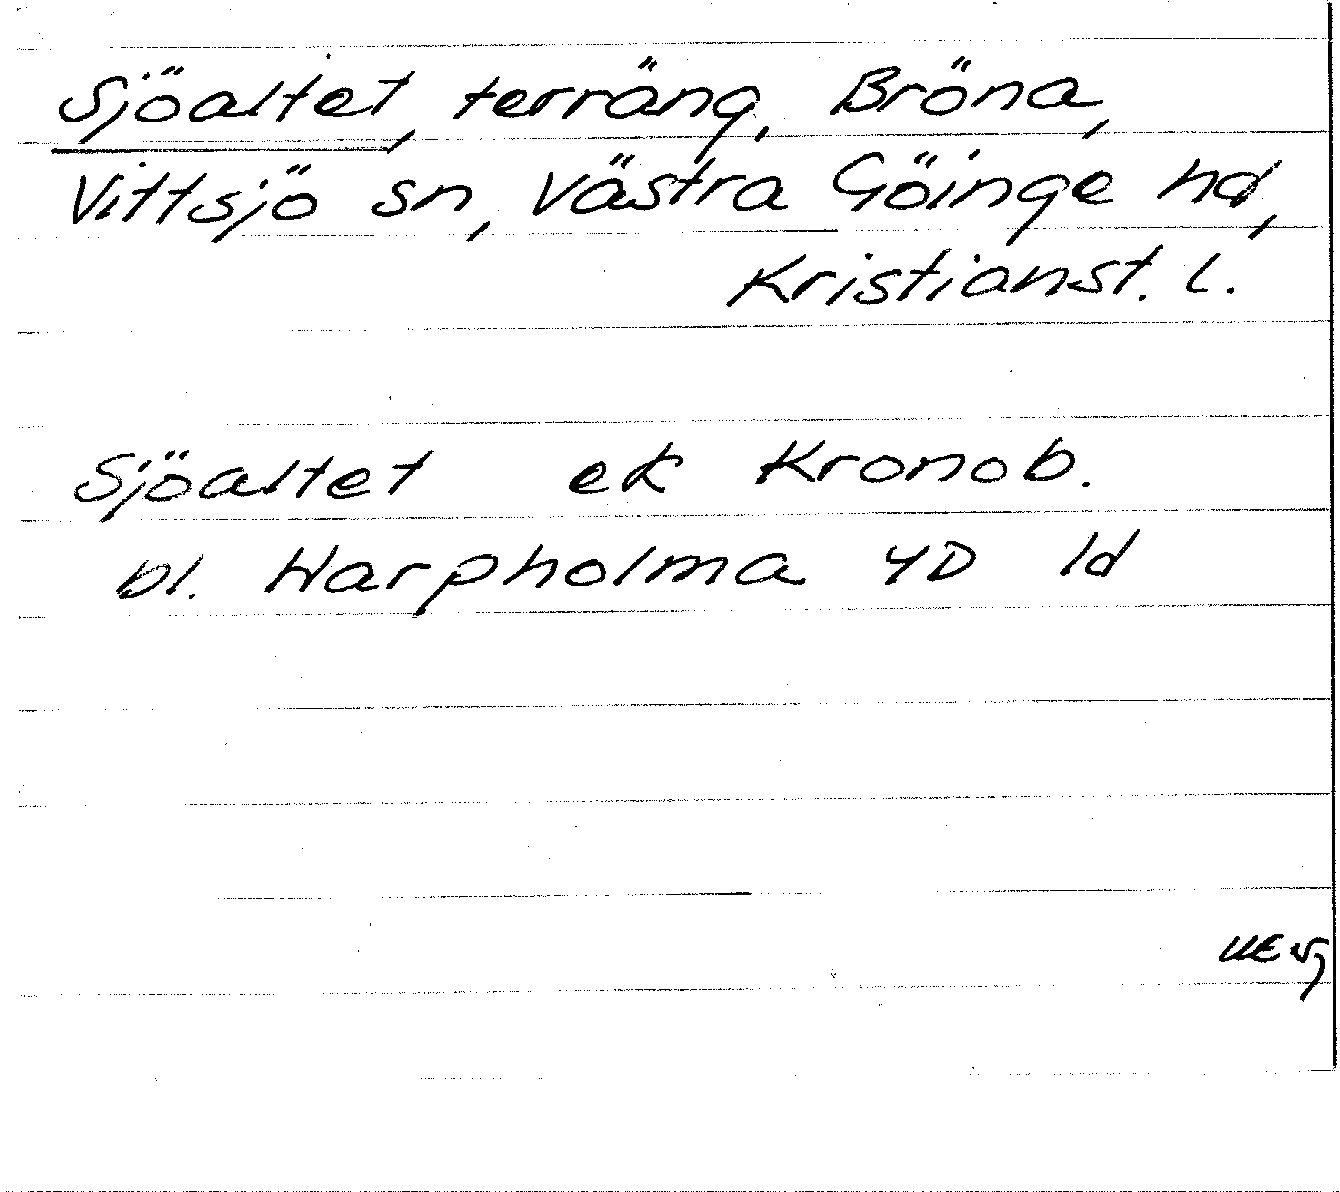 Sjöaltet, terräng, Bröna,
Vittsjö sn, Västra Göinge hd,
Kristianst. l.
Sjöaltet ek Kronob.
bl. Harpholma 4D ld